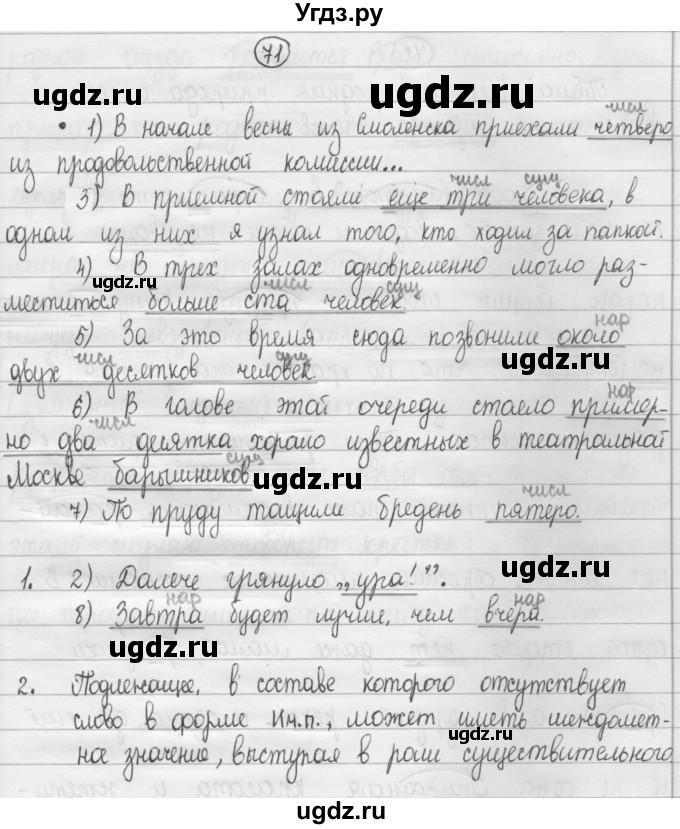 Угдз.ру
71
ugdz.ru ugdz.ru
числ
• 1) В начале весны из Смоленска приехали четверо
из продовольственной комиссии...
числ сущ
3) В приемной стояли еще три человека, в
одном из них я узнал того, кто ходил за папкой.
ugdz.ru
4) В трех залах одновременно могло раз-
сущ
меститься больше ста человек.
нар
5) За это время сюда позвонили около
числ сущ
ugdz.ru
двух десятков человек.
нар
6) В голове этой очереди стояло пример-
числ
но два десятка хорошо известных в театральной
сущ
Москве барышников
ugdz.ru
числ
7) По пруду тащили бредень пятеро.
ugdz.ru
1. 2) Далече грянуло „ура!”.
нар нар
8) Завтра будет лучше, чем вчера.
ugdz.ru
2. Подлежащее, в составе которого отсутствует
слово в форме И.п., может иметь междомет-
ugdz.ru ugdz.ru
ное значение, выступая в роли существительного
ugdz.ru